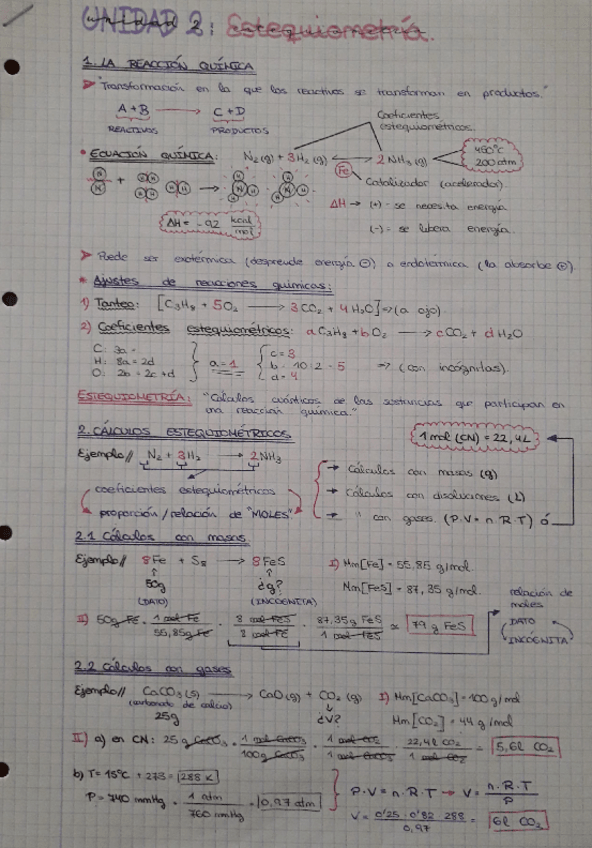 UNIDAD 2: Estequiometría.
1. LA REACCIÓN QUÍMICA
"Transformación en la que los reactivos se transforman en productos."
A+B → C+D
REACTIVOS PRODUCTOS
Coeficientes estequiométricos.
• ECUACIÓN QUÍMICA: N₂(g) + 3H₂(g) ⟷ 2NH₃(g)
450°C
200 atm
Fe
Catalizador (acelerador).
ΔH = -92 kcal/mol
ΔH → (+) - se necesita energía
(-) - se libera energía.
Puede ser exotérmica (desprende energía ⊖) o endotérmica (la absorbe ⊕)
• Ajustes de reacciones químicas:
1) Tanteo: [C₃H₈ + 5O₂ → 3CO₂ + 4H₂O] ⇒ (a ojo)
2) Coeficientes estequiométricos: aC₃H₈ + bO₂ → cCO₂ + dH₂O
C: 3a =
H: 8a = 2d
O: 2b = 2c + d
a = 1
c = 3
b = 10:2 = 5
d = 4
⇒ (con incógnitas).
ESTEQUIOMETRÍA: "Cálculos de las sustancias que participan en
una reacción química."
2. CÁLCULOS ESTEQUIOMÉTRICOS
1 mol (CN) = 22,4L
Ejemplo// N₂ + 3H₂ → 2NH₃
coeficientes estequiométricos
proporción/relación de "MOLES"
→ Cálculos con masas (g)
→ Cálculos con disoluciones (L)
→ " con gases. (P·V = n·R·T) ó
2.1 Cálculos con masas.
Ejemplo// 8Fe + S₈ → 8FeS
50g ¿g?
(DATO) (INCÓGNITA)
I) Mm[Fe] = 55,85 g/mol.
Mm[FeS] = 87,35 g/mol.
relación de moles
DATO
INCÓGNITA
II) 50g Fe · 1 mol Fe / 55,85g Fe · 8 mol FeS / 8 mol Fe · 87,35g FeS / 1 mol FeS ≈ 79 g FeS
2.2 Cálculos con gases
Ejemplo// CaCO₃(s) → CaO(g) + CO₂(g)
(carbonato de calcio)
25g ¿V?
I) Mm[CaCO₃] = 100 g/mol
Mm[CO₂] = 44 g/mol
II) a) en CN: 25g CaCO₃ · 1 mol CaCO₃ / 100g CaCO₃ · 1 mol CO₂ / 1 mol CaCO₃ · 22,4l CO₂ / 1 mol CO₂ = 5,6l CO₂
b) T = 15°C + 273 = 288 K
P = 740 mmHg · 1 atm / 760 mmHg = 0,97 atm
P·V = n·R·T → V = n·R·T / P
V = 0'25 · 0'82 · 288 / 0,97 = 6l CO₂